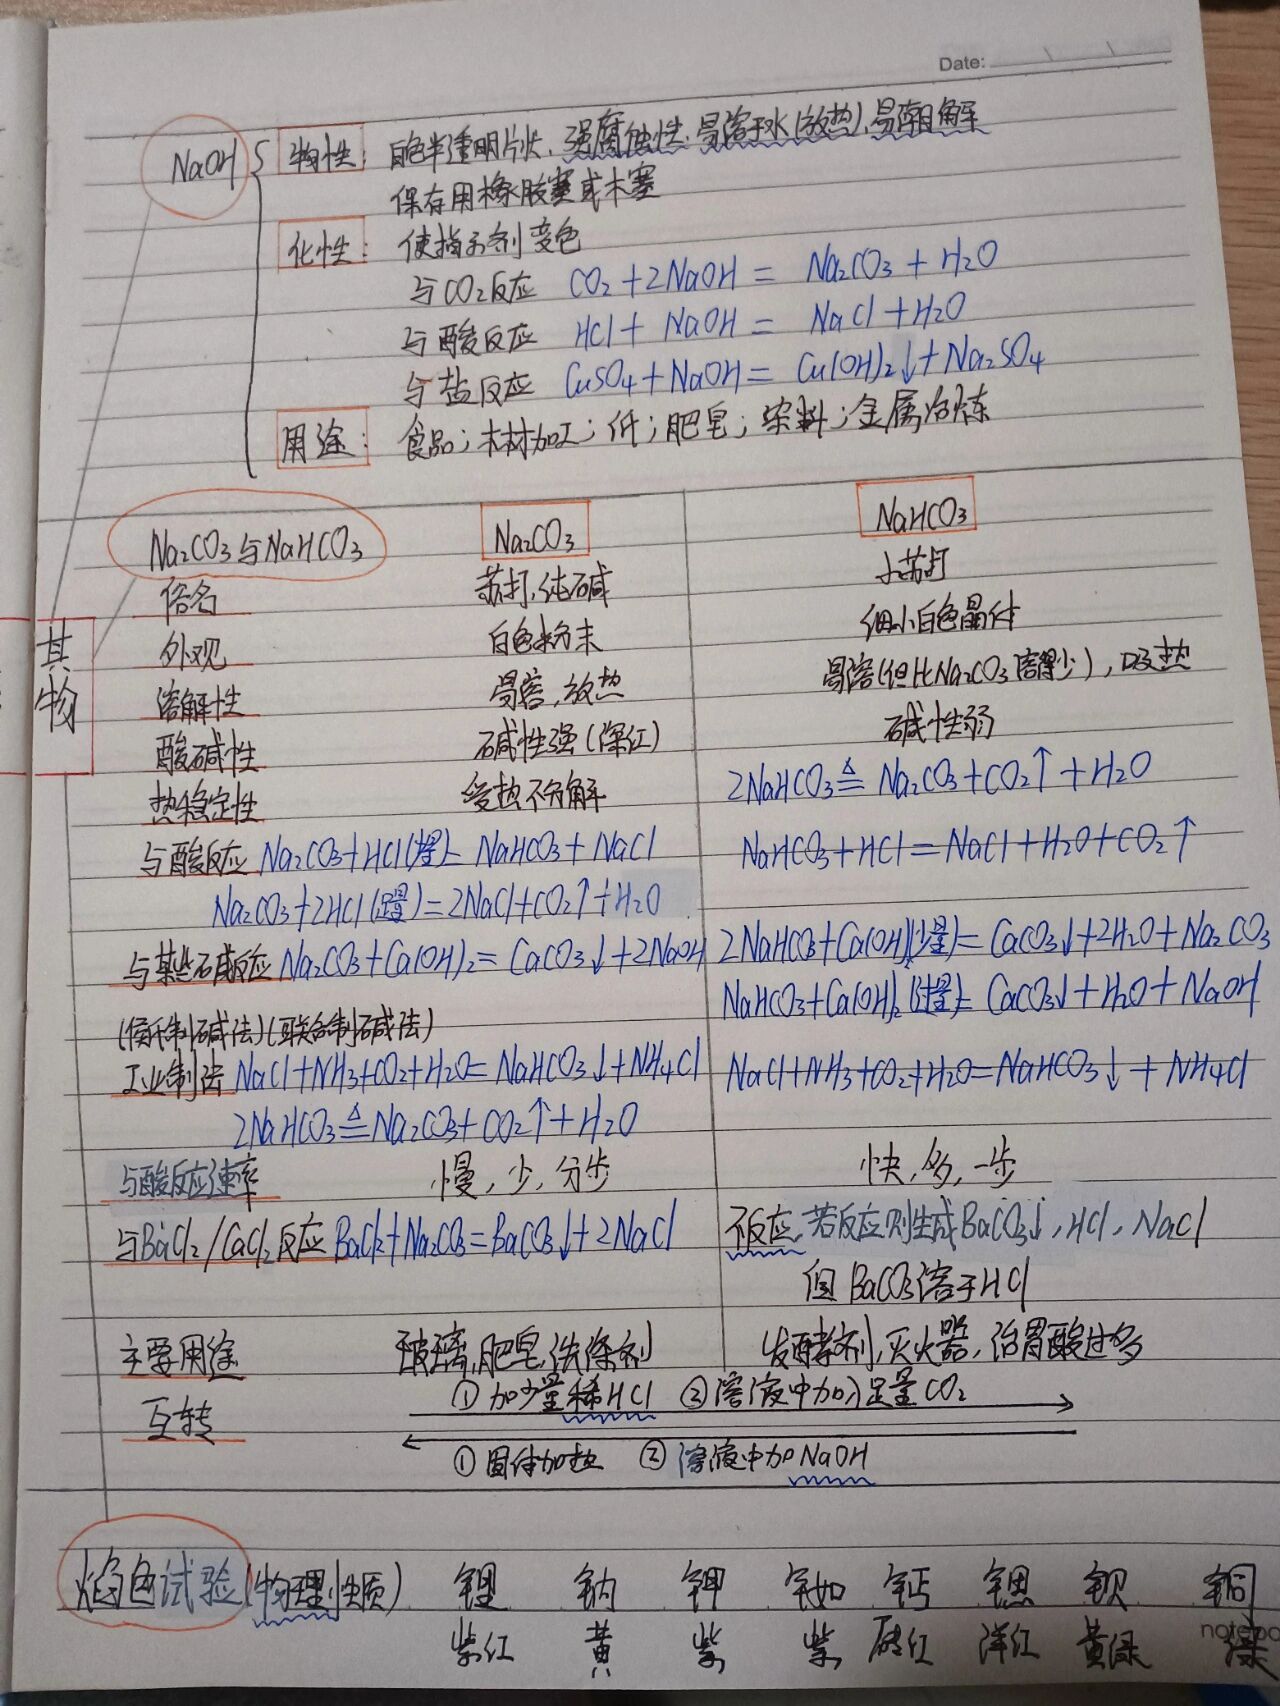 Date:
NaOH { 物性: 白色半透明片状、强腐蚀性、易溶于水(放热)、易潮解
保存用橡胶塞或木塞
化性: 使指示剂变色
与CO₂反应 CO₂+2NaOH= Na₂CO₃+H₂O
与酸反应 HCl+NaOH= NaCl+H₂O
与盐反应 CuSO₄+NaOH= Cu(OH)₂↓+Na₂SO₄
用途: 食品;木材加工;纸;肥皂;染料;金属冶炼
Na₂CO₃与NaHCO₃ Na₂CO₃ NaHCO₃
俗名 苏打,纯碱 小苏打
外观 白色粉末 细小白色晶体
其物
溶解性 易溶,放热 易溶(但比Na₂CO₃溶得少),吸热
酸碱性 碱性强(深红) 碱性弱
热稳定性 受热不分解 2NaHCO₃≜Na₂CO₃+CO₂↑+H₂O
与酸反应 Na₂CO₃+HCl(少量)=NaHCO₃+NaCl NaHCO₃+HCl=NaCl+H₂O+CO₂↑
Na₂CO₃+2HCl(足量)=2NaCl+CO₂↑+H₂O
与某些碱反应 Na₂CO₃+Ca(OH)₂=CaCO₃↓+2NaOH 2NaHCO₃+Ca(OH)₂(少量)=CaCO₃↓+2H₂O+Na₂CO₃
NaHCO₃+Ca(OH)₂(过量)=CaCO₃↓+H₂O+NaOH
(侯氏制碱法)(联合制碱法)
工业制法 NaCl+NH₃+CO₂+H₂O=NaHCO₃↓+NH₄Cl NaCl+NH₃+CO₂+H₂O=NaHCO₃↓+NH₄Cl
2NaHCO₃≜Na₂CO₃+CO₂↑+H₂O
与酸反应速率 慢,少,分步 快,多,一步
与BaCl₂/CaCl₂反应 BaCl₂+Na₂CO₃=BaCO₃↓+2NaCl 不反应,若反应则生成BaCO₃↓,HCl,NaCl
但BaCO₃溶于HCl
主要用途 玻璃,肥皂,洗涤剂 发酵剂,灭火器,治胃酸过多
互转 ①加少量稀HCl ②溶液中加足量CO₂
①固体加热 ②溶液中加NaOH
焰色试验(物理性质) 锂 钠 钾 铷 钙 锶 钡 铜
紫红 黄 紫 紫 砖红 洋红 黄绿 绿
notebo